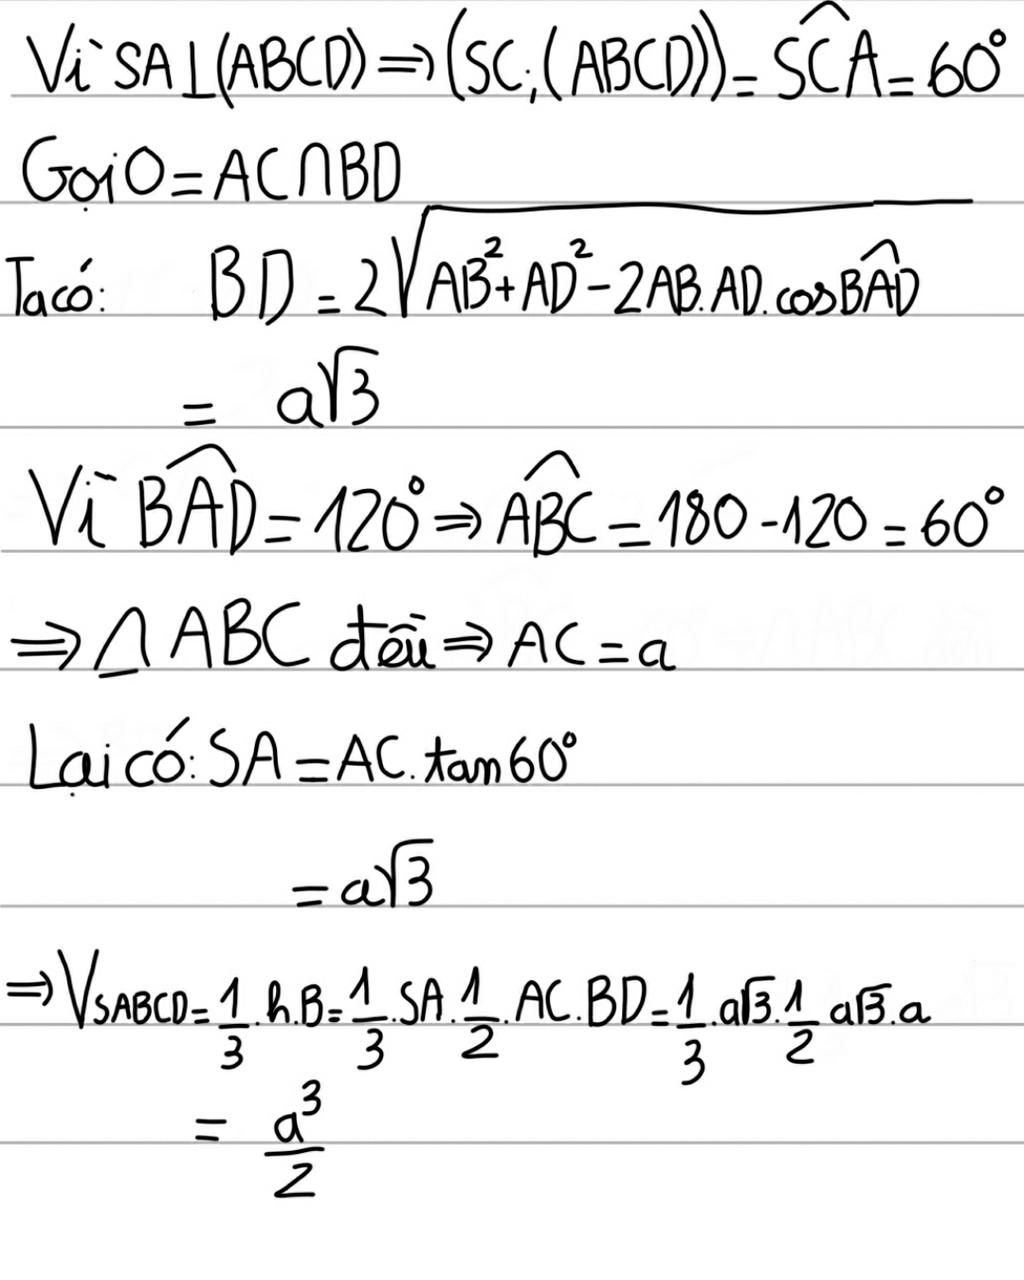 Vì SA⊥(ABCD)⇒(SC;(ABCD))=SĈA=60°
Gọi O=AC∩BD
Ta có: BD=2√(AB²+AD²-2AB.AD.cosBÂD)
= a√3
Vì BÂD=120°⇒AB̂C=180-120=60°
⇒△ABC đều⇒AC=a
Lại có: SA=AC.tan60°
=a√3
⇒V_SABCD=1/3.h.B=1/3.SA.1/2.AC.BD=1/3.a√3.1/2 a√3.a
= a³/2